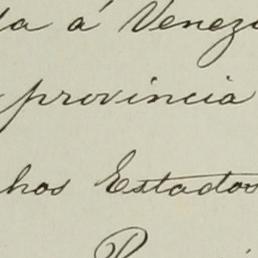 da á Venezu
provincia
hos Estados